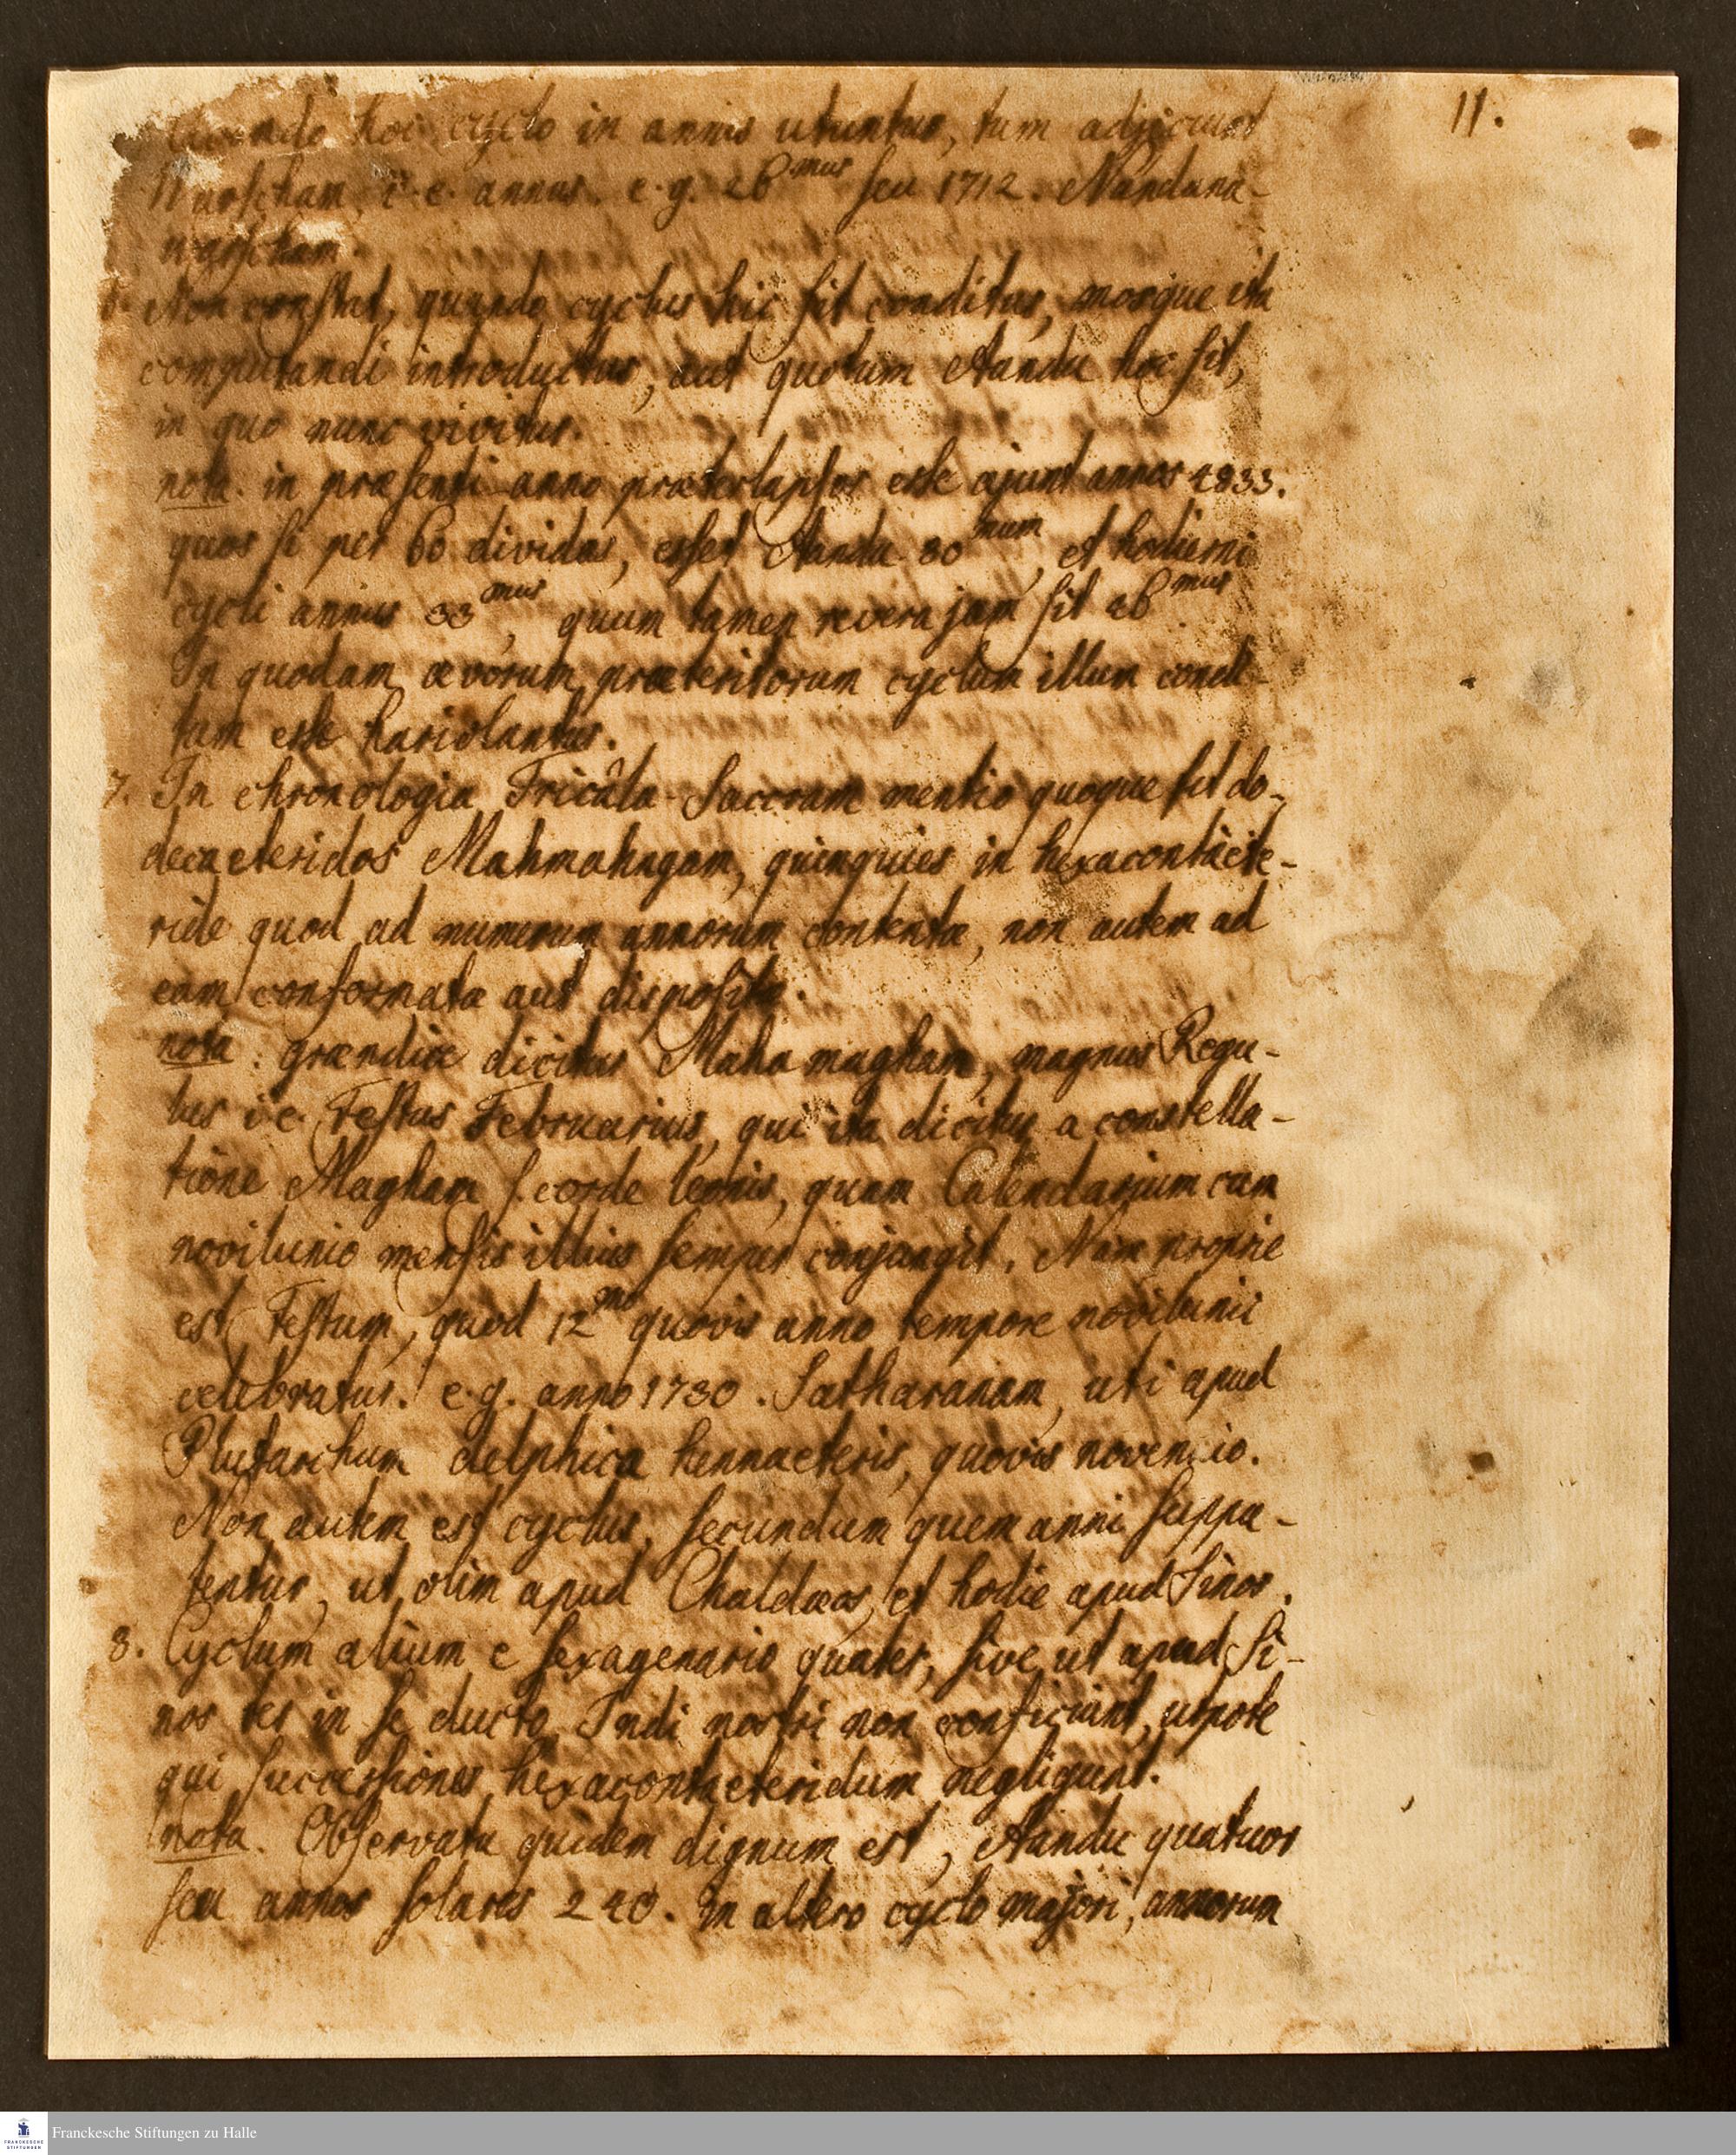 11.
hoc cyclo in annis utuntur, tum adjiciunt
Warscham, i. e. annus. e. g. 26mus seu 1712. Nandana-
warscham.
Non constat, quando cyclus hic sit conditus, mosque ita
computandi introductus, aut quotum Aandu hoc sit,
in quo nunc vivitur.
nota. in præsenti anno præterlapsos esse ajunt annos 4833.
quos si per 60 dividas, esset Aandu 80num, et hodierni
cycli annus 33mus, quum tamen revera jam sit 26mus
In quodam ævorum præteritorum cyclum illum condi-
tum esse hariolantur.
7. In chronologia Tricâla-Saccram mentio quoque fit do-
decaeteridos Mahmahagam, quinquies in hexacontaete-
ride quod ad numerum annorum contentæ, non autem ad
eam conformatæ aut dispositæ.
nota: grændice dicitur Maha magham, magnus Regu-
lus i e. Festus Februarius, qui ita dicitur a constella-
tione Magham s. corde leonis, quam Calendarium cum
novilunio mensis illius semper conjungit. Nam proprie
est Festum, quod 12mo quovis anno tempore novilunii
celebratur. e. g. anno 1730. Satharanam, uti apud
Plutarchum delphica hennaeteris, quovis novennio.
Non autem est cyclus, secundum quem anni suppu-
tentur, ut olim apud Chaldæos, et hodie apud Sinos.
8. Cyclum alium e sexagenario quater, sive ut apud Si-
nos ter in se ducto, Indi nostri non conficiunt, utpote
qui successiones hexacontaeteridum negligunt.
nota. Observatu quidem dignum est, Aandu quatuor
seu annos solares 240. in altero cyclo majori, annorum
Franckesche Stiftungen zu Halle
FRANCKESCHE
STIFTUNGEN